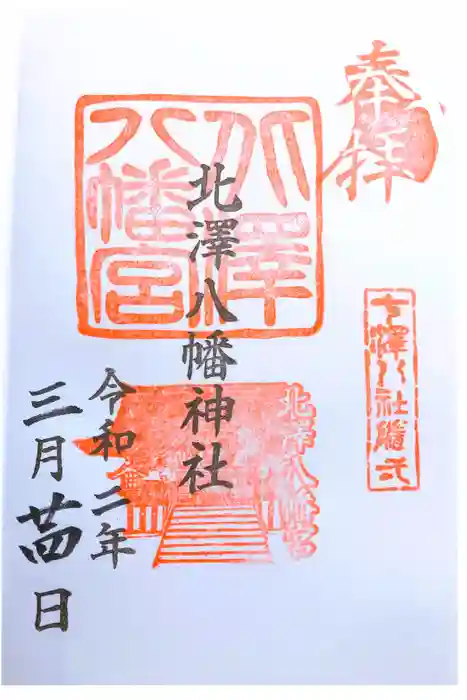 奉拝
七澤八社随弌
北澤八幡宮
北澤八幡神社
北澤八幡宮
令和二年
三月廿四日